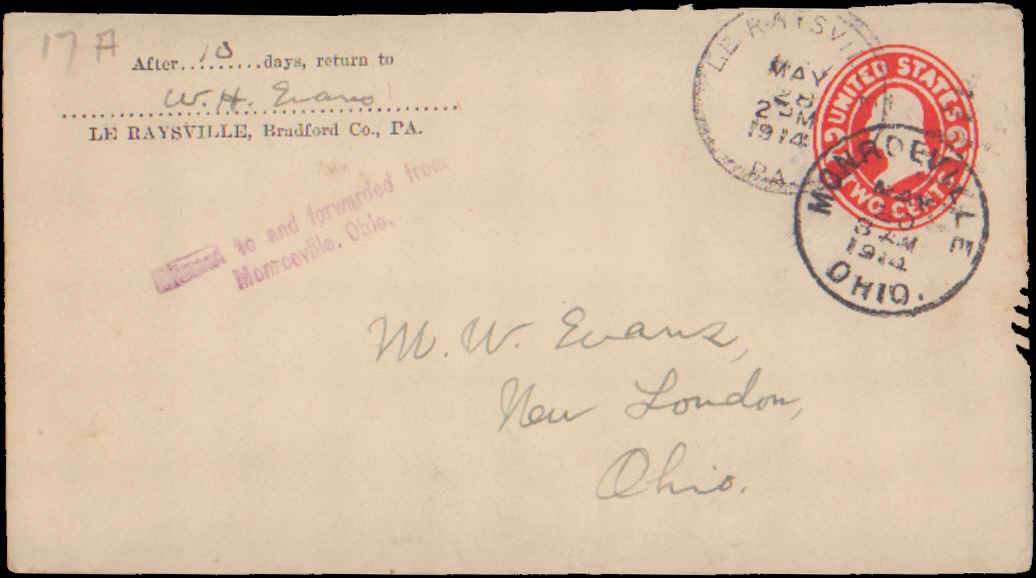 17 A
After..10.......days, return to
W. H. Evans
LE RAYSVILLE, Bradford Co., PA.
to and forwarded from
Monroeville, Ohio.
LE RAYSVI
MAY
2 PM
1914
PA
UNITED STATES
TWO CENTS
MONROEVILLE
MAY
8 AM
1914
OHIO.
M. W. Evans,
New London,
Ohio.